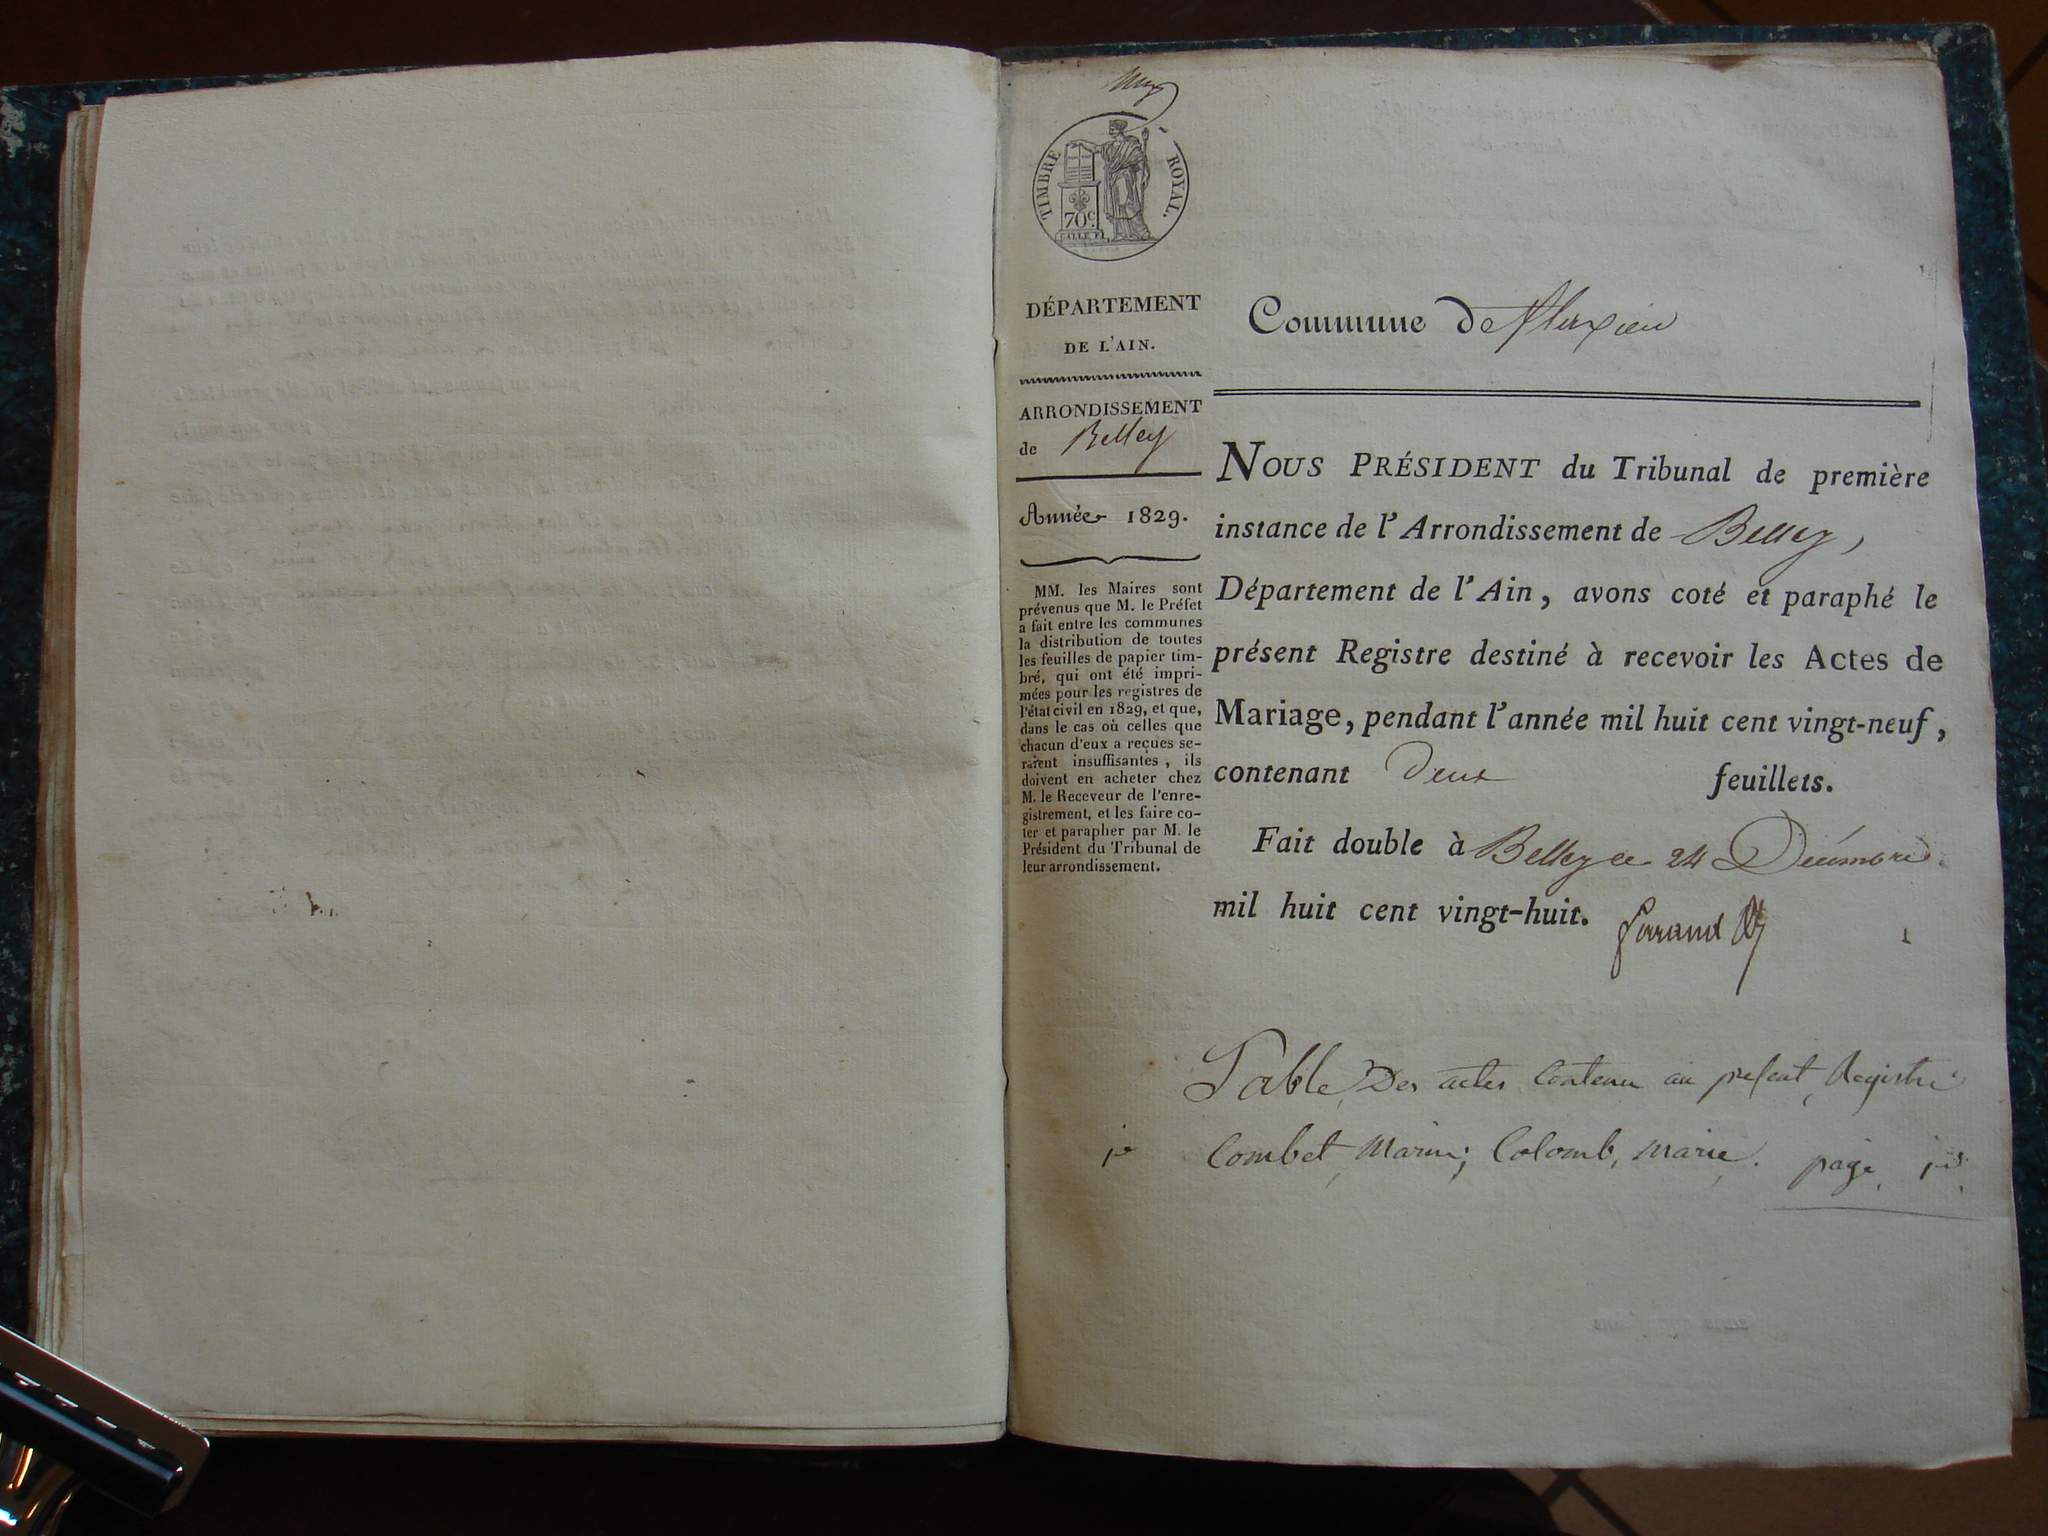 TIMBRE ROYAL.
70 C
DÉPARTEMENT
DE L'AIN.
ARRONDISSEMENT
de Belley
Année 1829.
MM. les Maires sont
prévenus que M. le Préfet
a fait entre les communes
la distribution de toutes
les feuilles de papier tim-
bré, qui ont été impri-
mées pour les registres de
l'état civil en 1829, et que,
dans le cas où celles que
chacun d'eux a reçues se-
raient insuffisantes, ils
doivent en acheter chez
M. le Receveur de l'enre-
gistrement, et les faire co-
ter et parapher par M. le
Président du Tribunal de
leur arrondissement.
Commune de
NOUS PRÉSIDENT du Tribunal de première
instance de l'Arrondissement de Belley,
Département de l'Ain, avons coté et paraphé le
présent Registre destiné à recevoir les Actes de
Mariage, pendant l'année mil huit cent vingt-neuf,
contenant deux feuillets.
Fait double à Belley ce 24 Décembre
mil huit cent vingt-huit.
Table Des actes Contenu au présent Registre
Combet, Marin; Colomb, marie. page